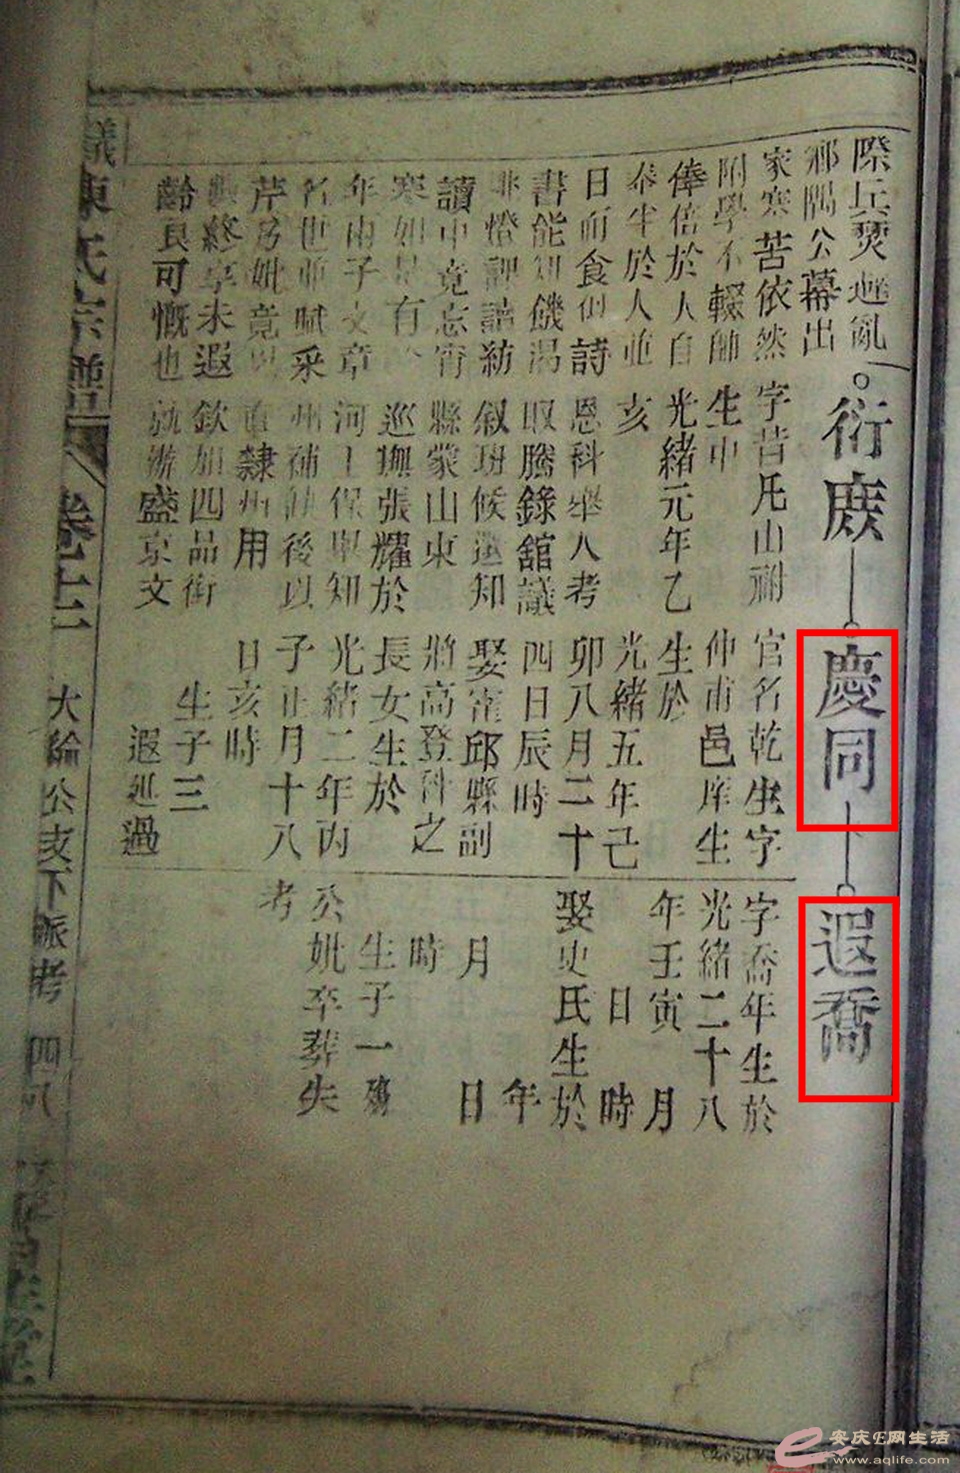 際兵燹避亂
鄉隅公幕出
家寒苦依然
附學不輟師
俸倍於人自
奉半於人並
日而食但詩
書能知饑渴
燈課誦紡
讀中竟忘宵
寒如是有
年由子文章
名世並賦采
芹乃妣竟以
終享未遐
齡良可慨也
衍庶
字昔凡山
生中
光緒元年乙
亥
恩科舉人考
取謄錄館議
敘班候選知
縣蒙山東
巡撫張耀於
河工保舉知
州補缺後以
直隸州用
欽加四品銜
盛京文
慶同
官名乾生字
仲甫邑庠生
生於
光緒五年己
卯八月二十
四日辰時
娶霍邱縣副
將高登科之
長女生於
光緒二年丙
子正月十八
日亥時
生子三
遐延過
遐喬
字喬年生於
光緒二十八
年壬寅 月
日 時
娶史氏生於
年
月 日
時
生子一殤
公妣卒葬失
考
陳氏宗譜 卷十一 大綸公支下派考 四八
安庆E网生活
www.aqlife.com